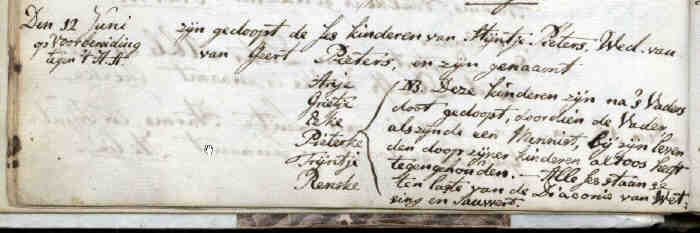 Den 12 Juni
op Voorbereiding
tegen 't H. A.
zijn gedoopt de ses kinderen van Stijntje Pieters, Wed. van
van Geert Pieters, en zijn genaamt
Arije
Grietje
Eeke
Pieterke
Trijntje
Renske
NB. Deze kinderen zijn na 's Vaders
doot gedoopt, doordien de Vader
als zijnde een Mennist, bij zijn leven
den doop zijner kinderen altoos heeft
tegengehouden. — Alle ses staan ze
ten laste van de Diaconie van Wet:
sing en Sauwert.